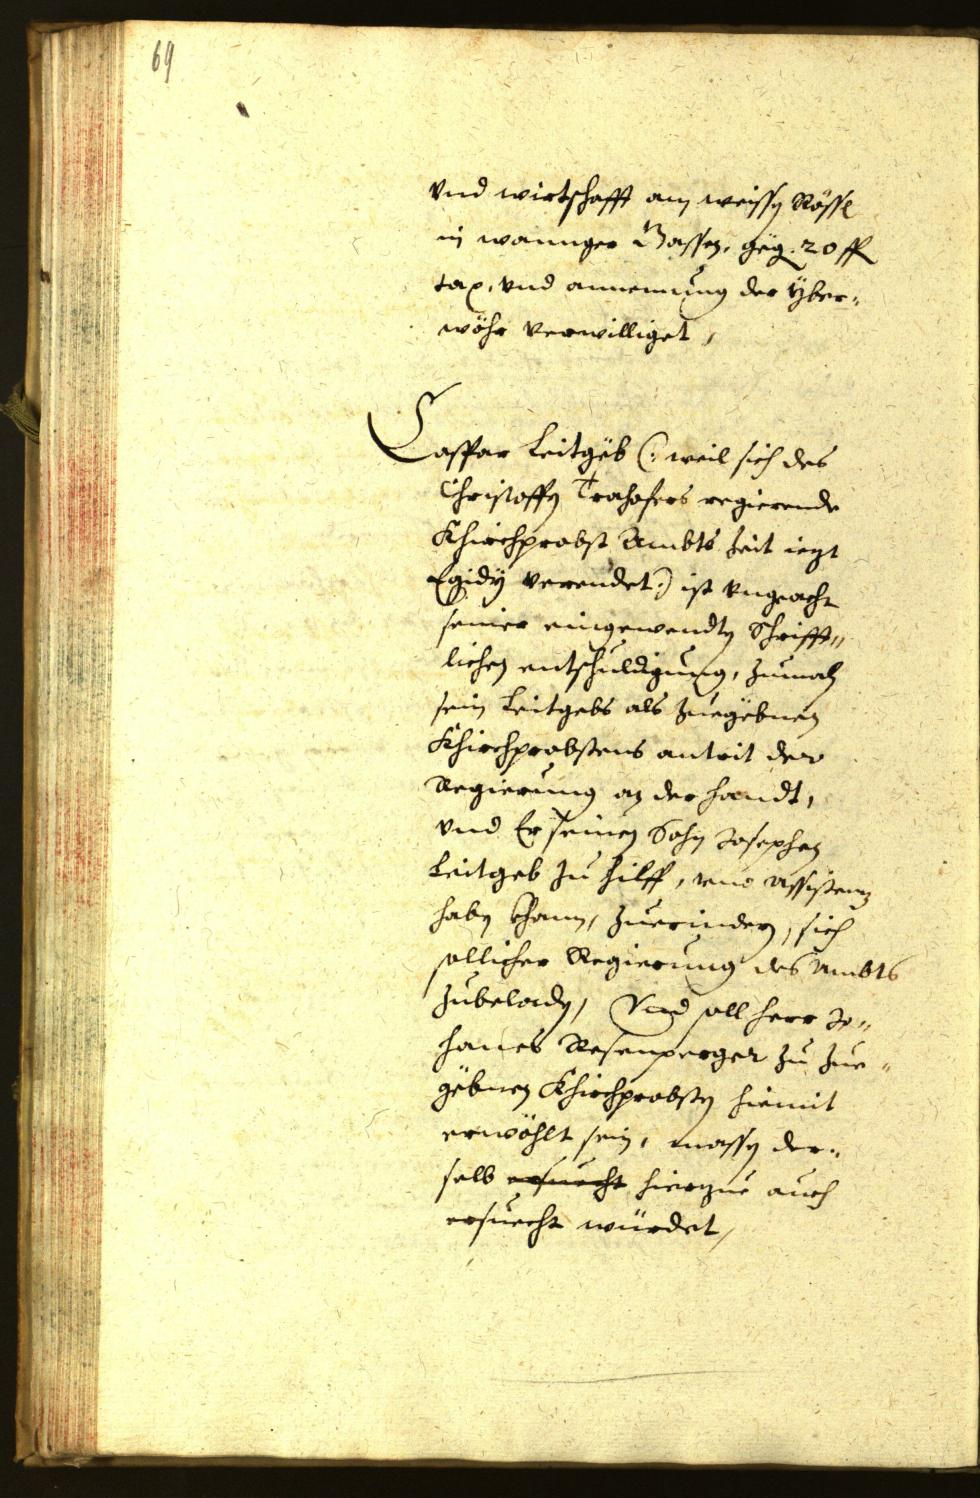 69
vnd wirtschafft am weissen Rössl
in wannger Gassen, geg. 20 fl
tax, vnd annemung der Yber-
wöhr verwilliget,
Caspar Leitgëb (: weil sich des
Christoffen Trahofers regierende
Khirchprobst Ambts Zeit iezt
Egidÿ verendet:) ist vngeacht
seiner eingewendten Schrifft-
lichen entschuldigung, zumaln
sein Leitgebs als zuegëbnen
Khirchprobstens antrit der
Regierung an der handt,
vnd Er seinen Sohn Josephen
Leitgeb zu hilff, vnd assistenz
haben khann, zuerindern, sich
sollicher Regierung des Ambts
zubeladen, Vnd soll herr Jo-
hannes Resenperger zu zue-
gëbnen Khirchprobsten hiemit
erwöhlt sein, massen der-
selb ersuecht hierzue auch
ersuecht würdet,